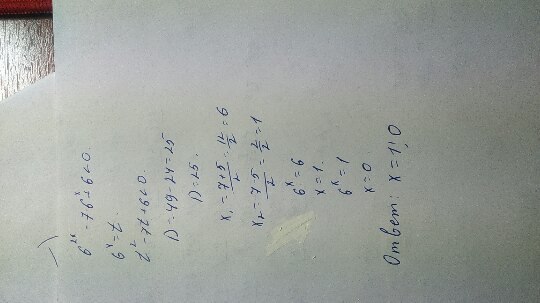 6^2x - 7·6^x + 6 = 0.
6^x = t.
t^2 - 7t + 6 = 0.
D = 49 - 24 = 25
D = 25.
x₁ = (7+5)/2 = 12/2 = 6
x₂ = (7-5)/2 = 2/2 = 1
6^x = 6
x = 1.
6^x = 1
x = 0.
Ответ: x = 1; 0